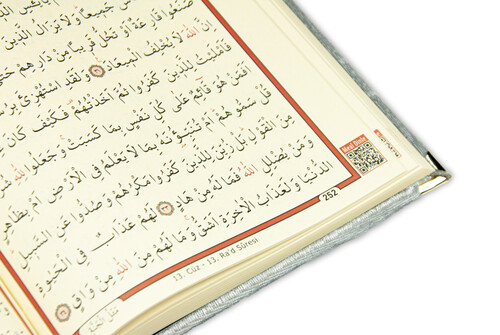 صَنَعُوا قَارِعَةٌ أَوْ تَحُلُّ قَرِيبًا مِنْ دَارِهِمْ حَتّٰى
اِنَّ اللّٰهَ لَا يُخْلِفُ الْمِيعَادَ ﴿٣١﴾ وَلَقَدِ اسْتُهْزِئَ بِرُسُلٍ
فَاَمْلَيْتُ لِلَّذِينَ كَفَرُوا ثُمَّ اَخَذْتُهُمْ فَكَيْفَ كَانَ
اَفَمَنْ هُوَ قَائِمٌ عَلٰى كُلِّ نَفْسٍ بِمَا كَسَبَتْ وَجَعَلُوا لِلّٰهِ
قُلْ سَمُّوهُمْ اَمْ تُنَبِّؤُنَهُ بِمَا لَا يَعْلَمُ فِي الْاَرْضِ اَمْ بِظَاهِرٍ
مِنَ الْقَوْلِ بَلْ زُيِّنَ لِلَّذِينَ كَفَرُوا مَكْرُهُمْ وَصُدُّوا عَنِ السَّبِيلِ
وَمَنْ يُضْلِلِ اللّٰهُ فَمَا لَهُ مِنْ هَادٍ ﴿٣٣﴾ لَهُمْ عَذَابٌ فِي الْحَيٰوةِ
الدُّنْيَا وَلَعَذَابُ الْاٰخِرَةِ اَشَقُّ وَمَا لَهُمْ مِنَ اللّٰهِ مِنْ وَاقٍ ﴿٣٤﴾
252
13. Cüz - 13. Ra'd Sûresi